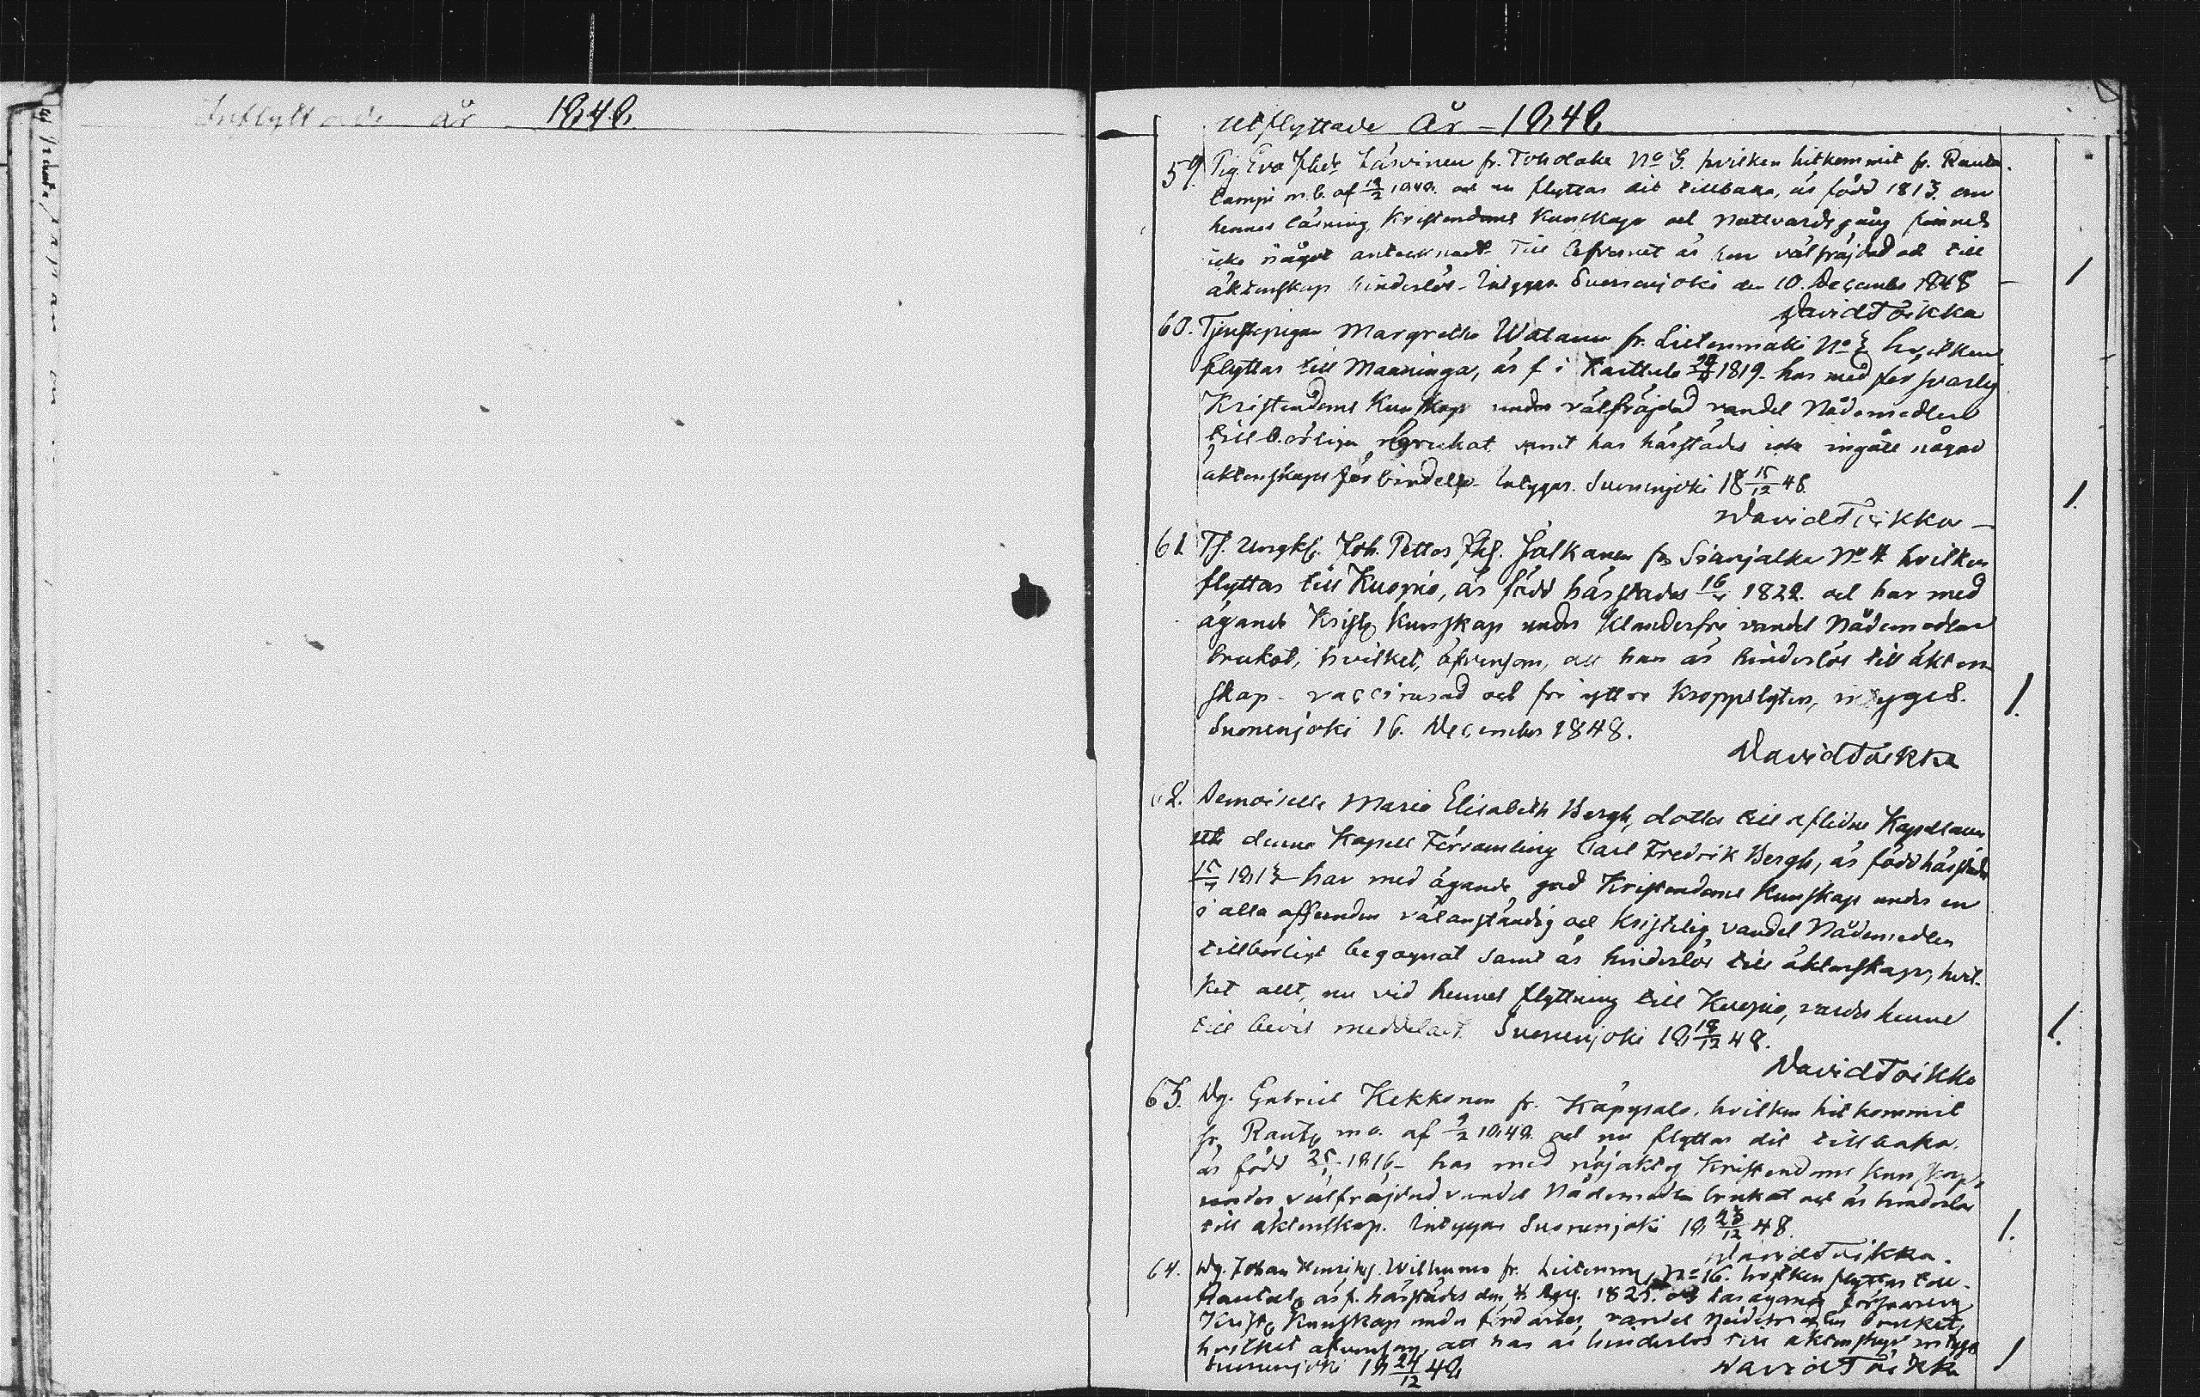 Inflyttade år 1848.
Utflyttade år 1848
59. Pig. Eva Jhsdr Läsvinen fr. Toholaks No 3. hvilken hitkommit fr. Rauta
lampi m. b. af 19/2 1848. och nu flyttar dit tillbaka, är född 1813. om
hennes läsning, Kristendoms Kunskap och Nattvardsgång finnes
icke något antecknadt. Till lefvernet är hon välfräjdad och till
äktenskap hinderlös. Intygar Suonenjoki den 10. December 1848
David Toikka
60. Tjenstepigan Margretha Watanen fr. Lietenmäki No hvilken
flyttar till Maaninga, är f. i Karttula 1819. har med försvarlig
Kristendoms Kunskap under välfräjdad vandel Nådemedlen
tillbörligen begrukat samt har härstädes icke ingått någon
äktenskaps förbindelse. Intygar. Suonenjoki 18 15/12 48.
David Toikka
61 Tj. Ungk. Joh. Petter Jhs. Jalkanen fr Sianjalka No 4 hvilken
flyttar till Kuopio, är född härstädes 1822. och har med
ägande Kristd. Kunskap under Klanderfri vandel Nådemedlen
brukat, hvilket, äfvensom, att han är hinderlös till äkten
skap. vaccinerad och fri yttre Kroppslyten, intygas.
Suonenjoki 16. December 1848.
David Toikka
62. Demoiselle Maria Elisabeth Bergh, dotter till aflidne Kapellanen
uti denne Kapell Församling Carl Fredrik Bergh, är född härstädes
har med ägande god Kristendoms Kunskap under en
i alla afseenden välanständig och Kristelig vandel Nådemedlen
tillbörligt begagnat samt är hinderlös till äktenskap, hvil-
ket allt, nu vid hennes flyttning till Kuopio, varder henne
till bevis meddeladt. Suonenjoki 18 18/12 48.
David Toikka
63. Dg. Gabriel Kekkonen fr. Käpysalo, hvilken hitkommit
fr. Rautp. m. a. af 9/2 1848. och nu flyttar dit tillbaka.
är född 25/1 1816. har med nöjaktig Kristendoms Kunskap
under välfräjdad vandel Nådemedlen brukat och är hinderlös
till äktenskap. Intygar Suonenjoki 18 23/12 48.
David Toikka.
64. Dg. Johan Henriks. Wilhunen fr. Lietenm. No 16. hvilken flyttar till
är f. härstädes den 1825. och har ägande försvarlig
Kristd. Kunskap under vandel Nådemedlen brukat,
hvilket äfvensom, att han är hinderlös till äktenskap intygas
Suonenjoki 18 24/12 48
David Toikka